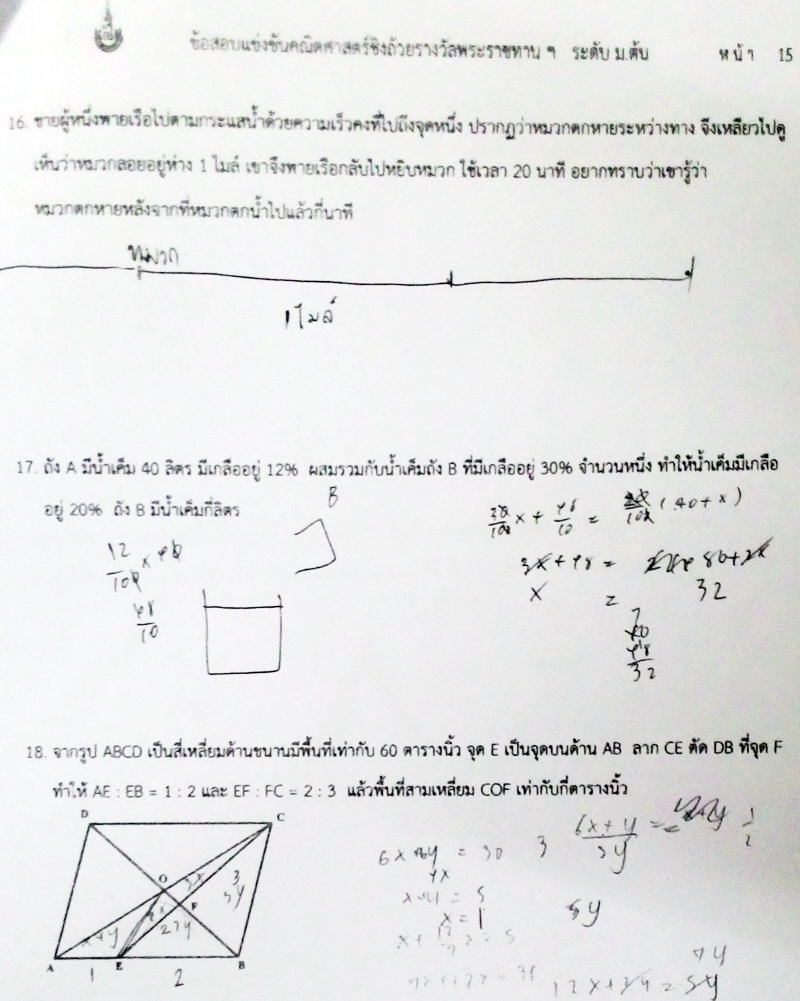 ข้อสอบแข่งขันคณิตศาสตร์ชิงถ้วยรางวัลพระราชทาน ฯ ระดับ ม.ต้น หน้า 15
16. ชายผู้หนึ่งพายเรือไปตามกระแสน้ำด้วยความเร็วคงที่ไปถึงจุดหนึ่ง ปรากฏว่าหมวกตกหายระหว่างทาง จึงเหลียวไปดู
เห็นว่าหมวกลอยอยู่ห่าง 1 ไมล์ เขาจึงพายเรือกลับไปหยิบหมวก ใช้เวลา 20 นาที อยากทราบว่าเขารู้ว่า
หมวกตกหายหลังจากที่หมวกตกน้ำไปแล้วกี่นาที
หมวก
1 ไมล์
17. ถัง A มีน้ำเค็ม 40 ลิตร มีเกลืออยู่ 12% ผสมรวมกับน้ำเค็มถัง B ที่มีเกลืออยู่ 30% จำนวนหนึ่ง ทำให้น้ำเค็มมีเกลือ
อยู่ 20% ถัง B มีน้ำเค็มกี่ลิตร
B
(40+x)
12
100
48
10
3x+48 =
x = 32
32
18. จากรูป ABCD เป็นสี่เหลี่ยมด้านขนานมีพื้นที่เท่ากับ 60 ตารางนิ้ว จุด E เป็นจุดบนด้าน AB ลาก CE ตัด DB ที่จุด F
ทำให้ AE : EB = 1 : 2 และ EF : FC = 2 : 3 แล้วพื้นที่สามเหลี่ยม COF เท่ากับกี่ตารางนิ้ว
D C
O
3x
3
3y
F
x+y
2x
2y
A E B
1 2
6x+y
= 30
3
x = 1
5y
7y
12x+3y = 5y